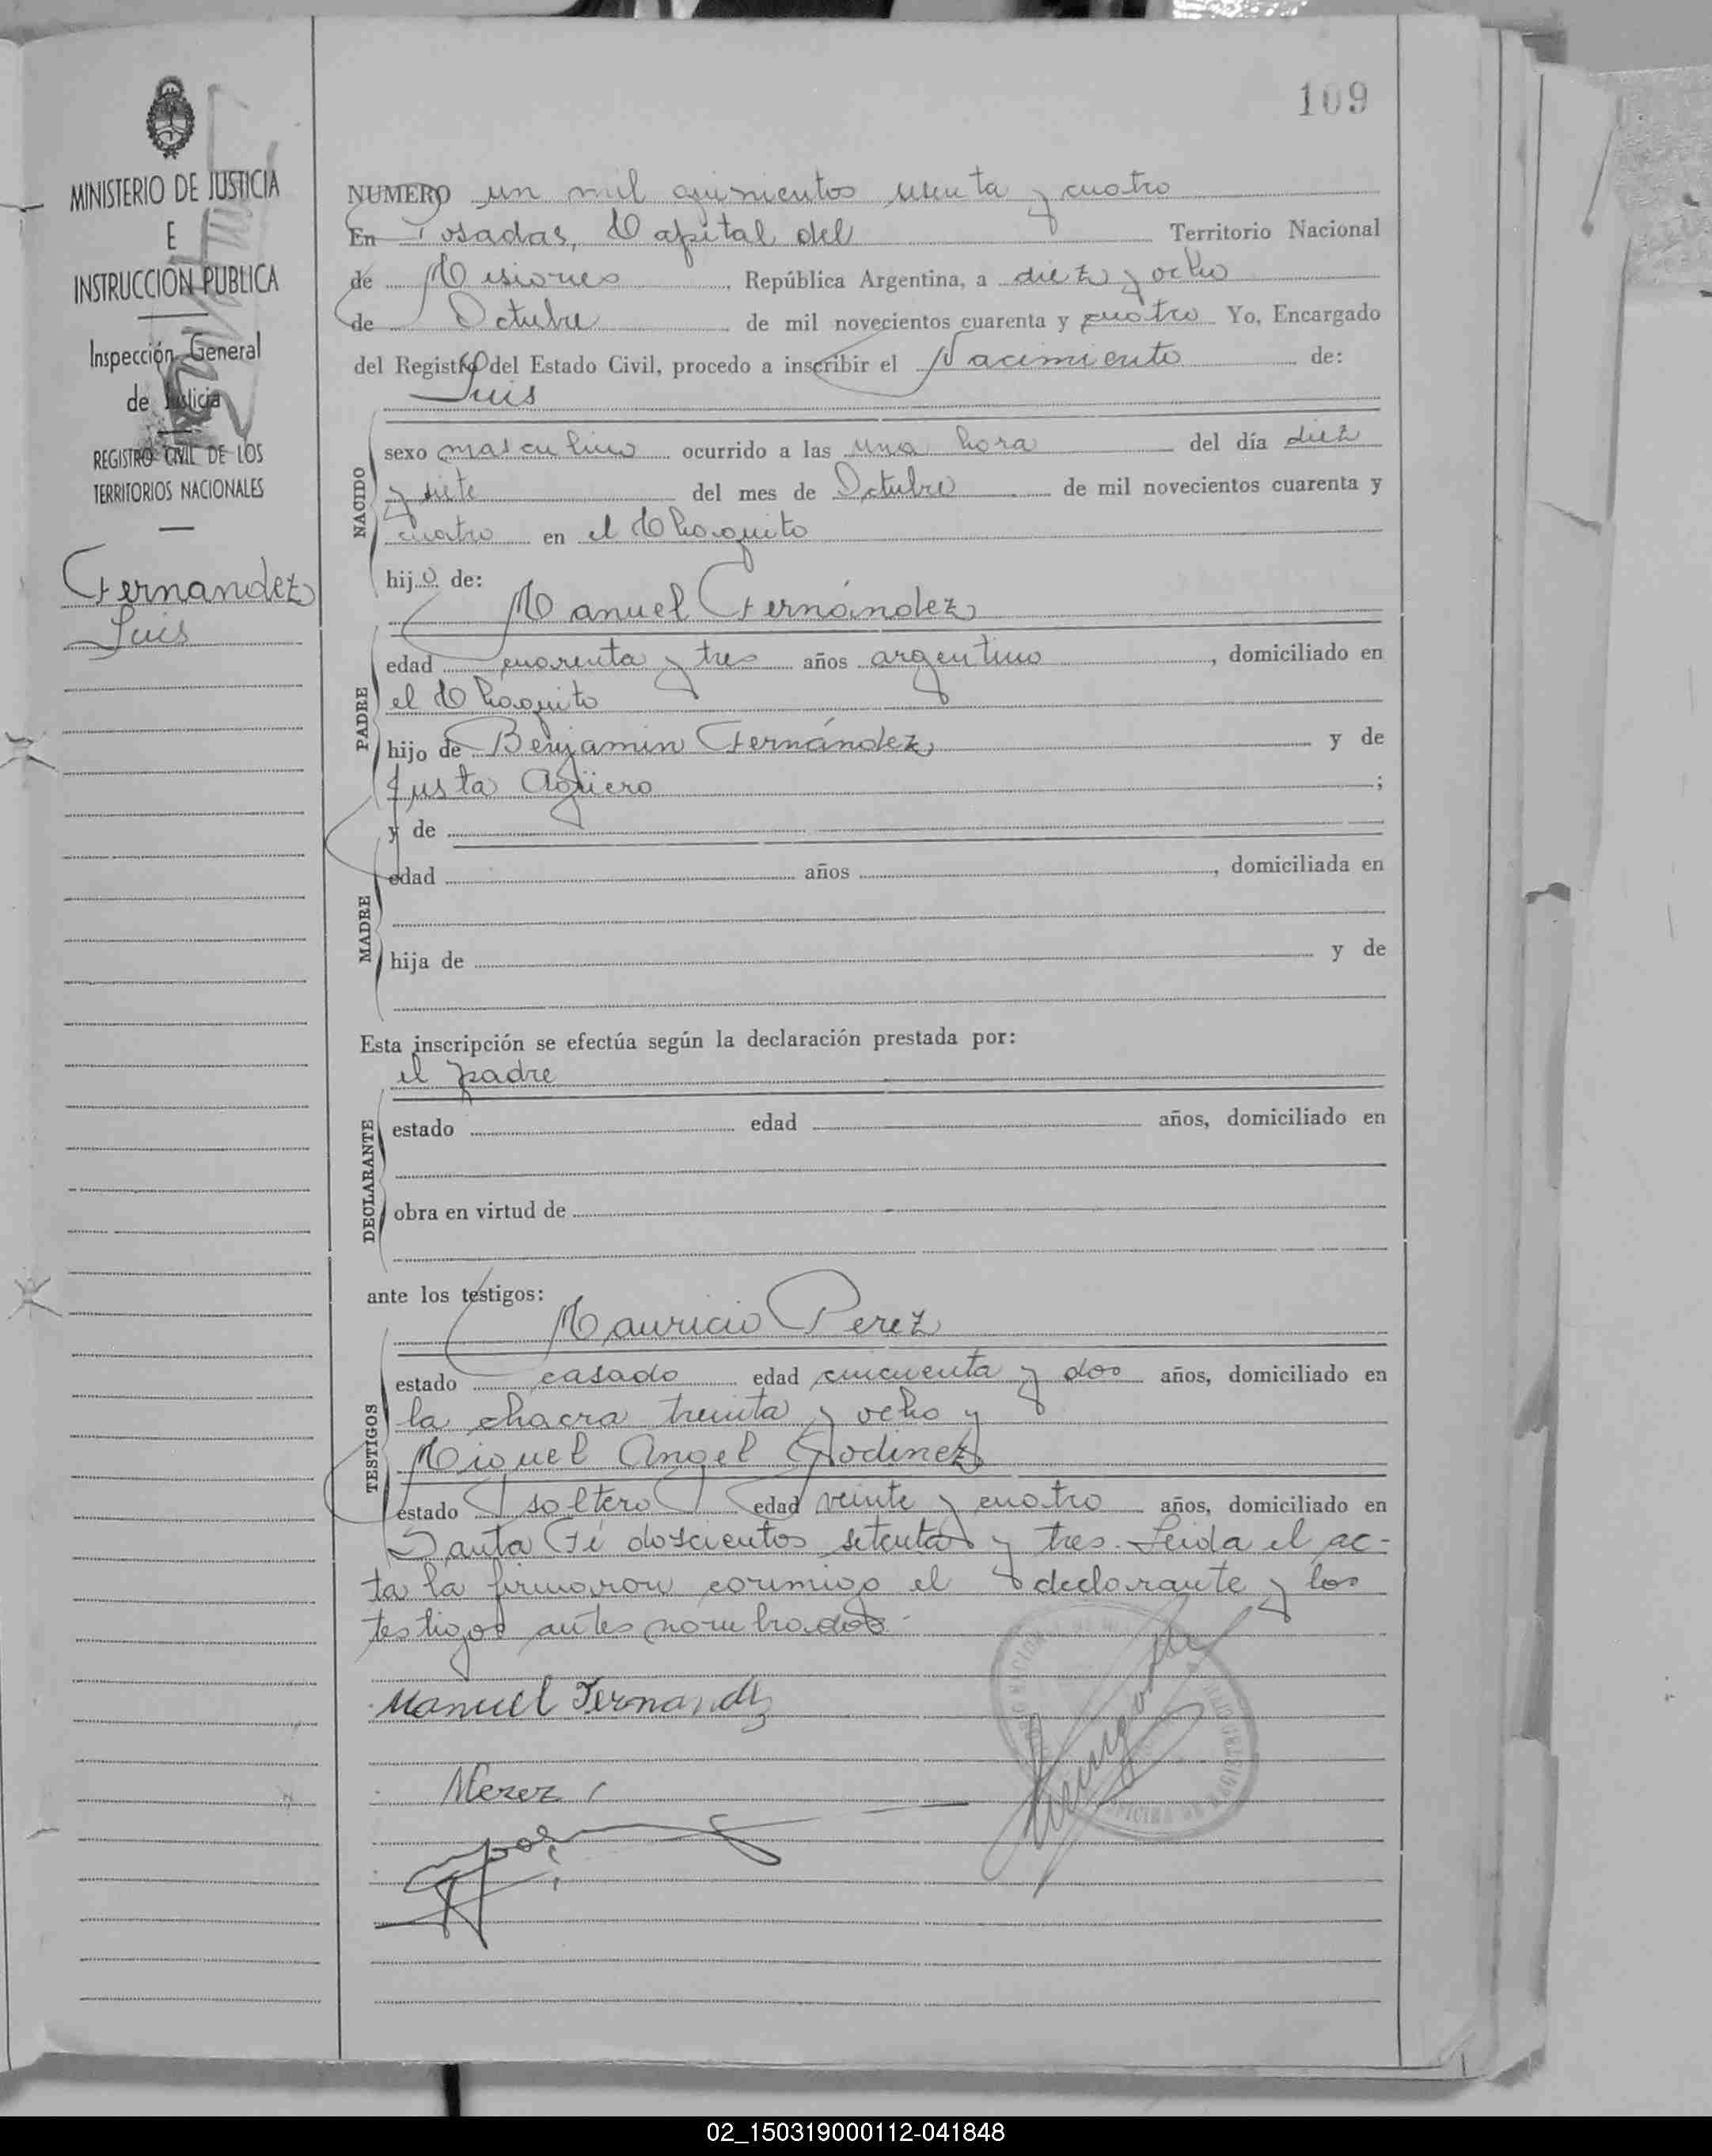 109
MINISTERIO DE JUSTICIA
E
INSTRUCCIÓN PUBLICA
Inspección General
de Justicia
REGISTRO CIVIL DE LOS
TERRITORIOS NACIONALES
Fernandez
Luis
NUMERO un mil quinientos y cuatro
En Posadas, Capital del Territorio Nacional
de Misiones, República Argentina, a diez y ocho
de Octubre de mil novecientos cuarenta y cuatro Yo, Encargado
del Registro del Estado Civil, procedo a inscribir el Nacimiento de:
Luis
NACIDO
sexo masculino ocurrido a las una hora del día diez
y siete del mes de Octubre de mil novecientos cuarenta y
cuatro en el Chaquito
hijo de:
Manuel Fernández
PADRE
edad cuarenta y tres años argentino, domiciliado en
el Chaquito
hijo de Benjamin Fernández y de
Justa Agüero ;
y de
MADRE
edad años , domiciliada en
hija de y de
Esta inscripción se efectúa según la declaración prestada por:
el padre
DECLARANTE
estado edad años, domiciliado en
obra en virtud de
ante los testigos:
Mauricio Perez
TESTIGOS
estado casado edad cincuenta y dos años, domiciliado en
la chacra treinta y ocho y
Miguel Angel Godinez
estado soltero edad veinte y cuatro años, domiciliado en
Santa Fé doscientos setenta y tres. Leida el ac-
ta la firmaron conmigo el declarante y los
testigos antes nombrados.
Manuel Fernandez
MPerez
02_150319000112-041848